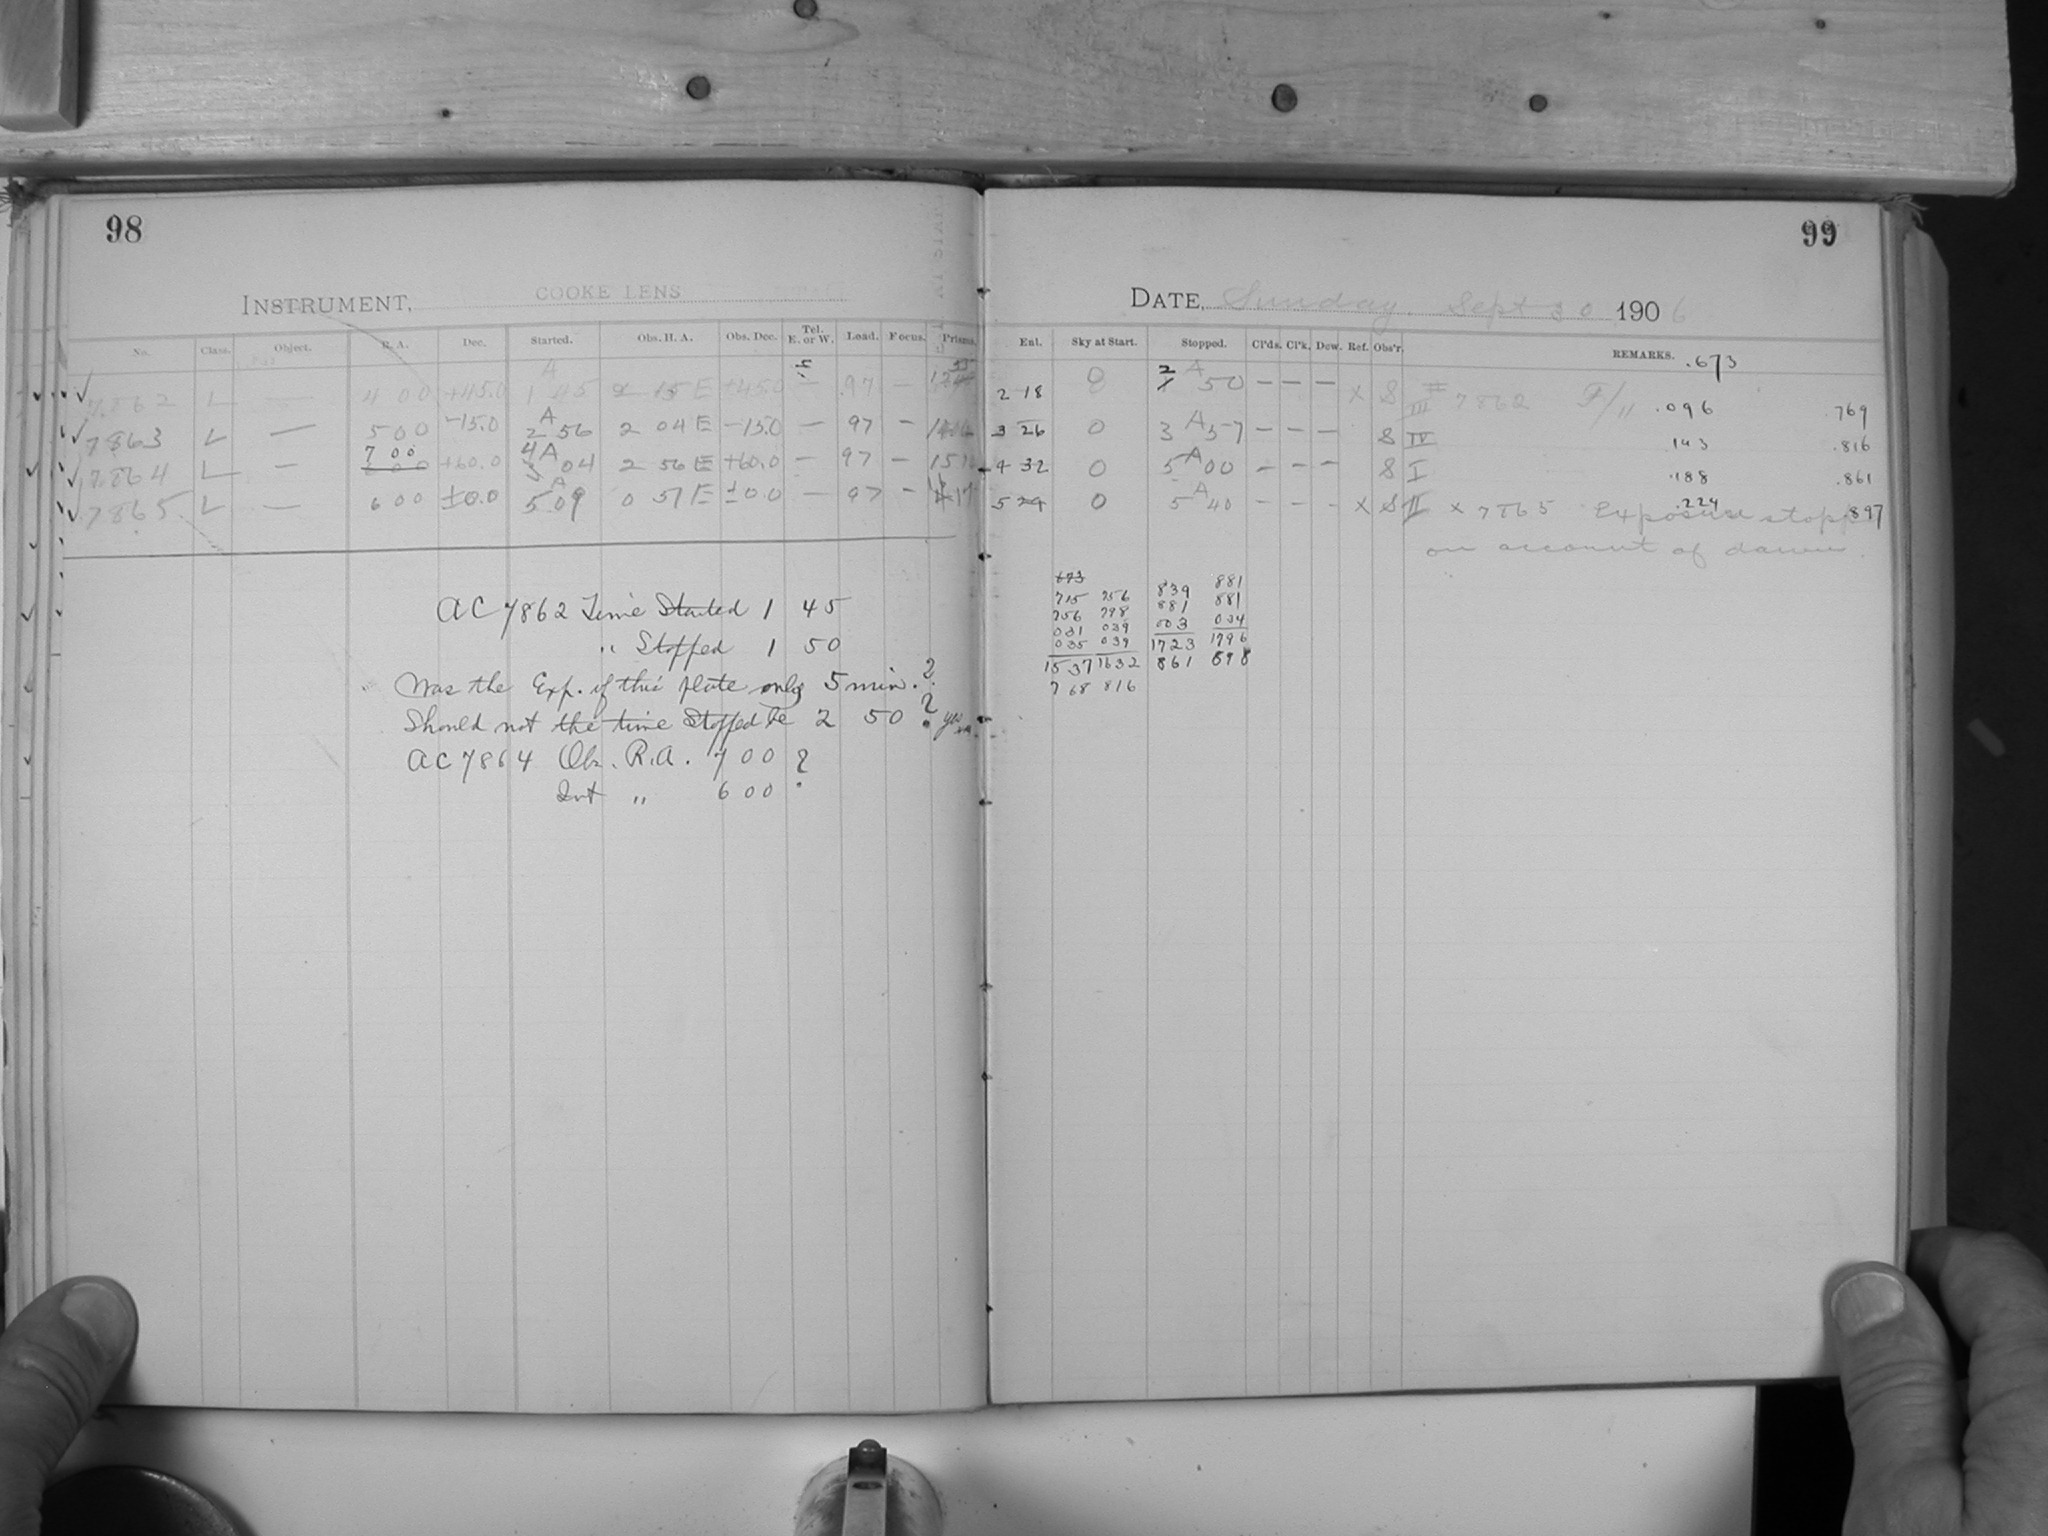 98
INSTRUMENT, COOKE LENS
No. Class. Object. R. A. Dec. Started. Obs. H. A. Obs. Dec. Tel. E. or W. Load. Focus. Prisms.
7862 L — 4 00 +45.0 1 A 45 2 15 E +45.0 — 97 —
7863 L — 5 00 -15.0 2 A 56 2 04 E -15.0 — 97 —
7864 L — 7 00 +60.0 4 A 04 2 56 E +60.0 — 97 —
7865 L — 6 00 ±0.0 5 A 09 0 51 E ±0.0 — 97 —
AC 7862 Time Started 1 45
" Stopped 1 50
Was the Exp. of this plate only 5 min.?
Should not the time Stopped be 2 50 ? yes
AC 7864 Obs. R.A. 7 00 ?
Int " 6 00
99
DATE, Sunday, Sept 30 1906
Enl. Sky at Start. Stopped. Cl'ds. Cl'k. Dew. Ref. Obs'r. REMARKS. .673
2 18 0 2 A 50 — — — X S III # 7862 F/11 .096 .769
3 26 0 3 A 57 — — — S IV .143 .816
4 32 0 5 A 00 — — — S I .188 .861
5 24 0 5 A 40 — — - X S II x 7865 Exposure stopp .224 .897
on account of dawn.
673 881
715 756 839 881
756 798 881 034
031 039 003 1796
035 039 1723 898
1537 1632 861
768 816